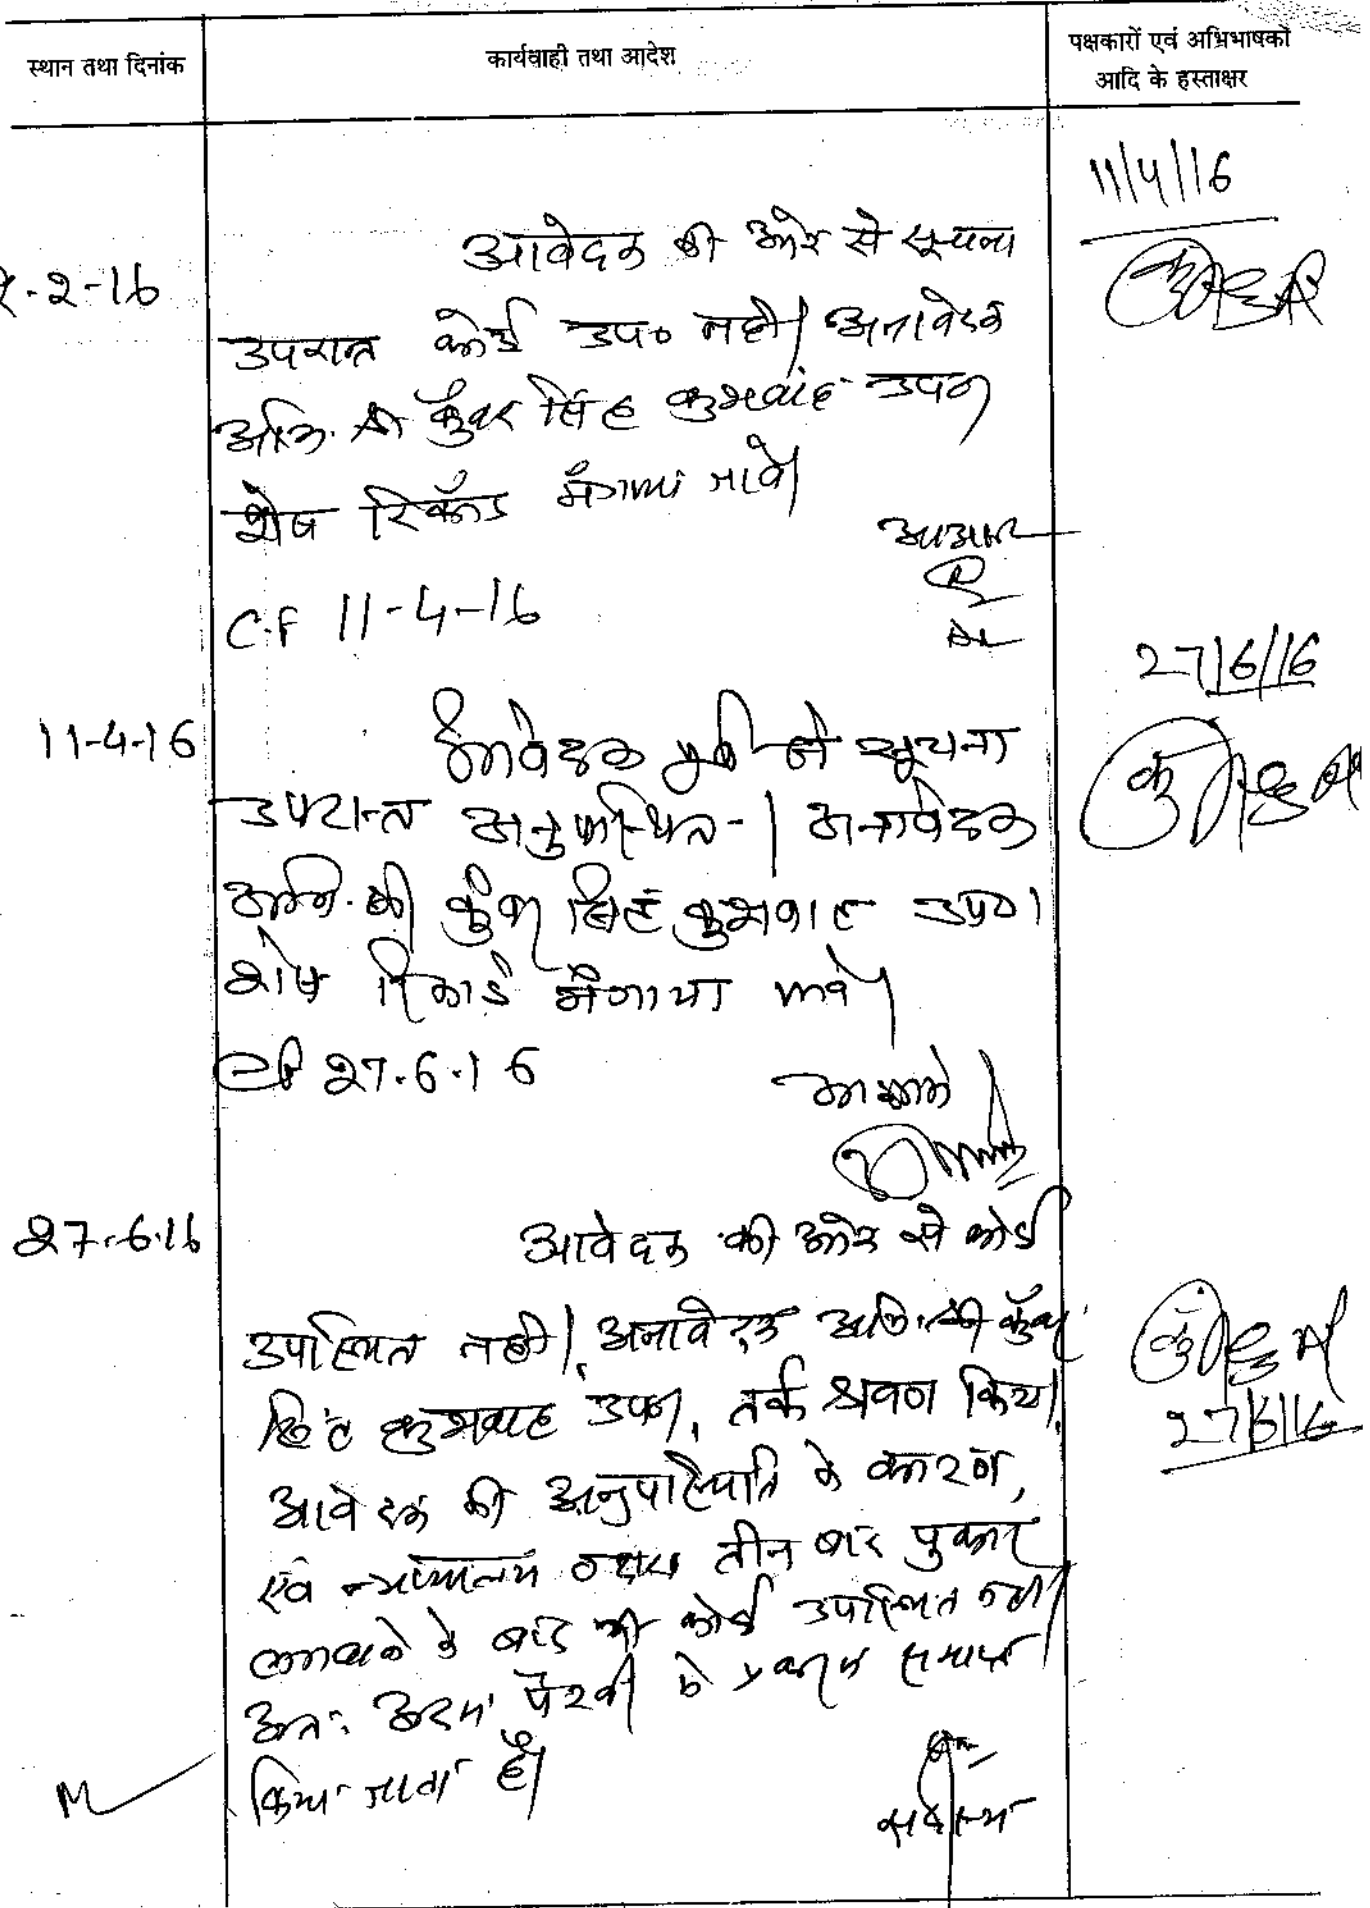 स्थान तथा दिनांक
कार्यवाही तथा आदेश
पक्षकारों एवं अभिभाषकों
आदि के हस्ताक्षर
11/4/16
-2-16
आवेदक की ओर से सूचना
उपरान्त कोई उप० नहीं। अनावेदक
अभि. श्री कुँवर सिंह कुशवाह उप०
शेष रिकॉर्ड मँगाया जावे।
C.F 11-4-16
27/6/16
11-4-16
आवेदक पूर्व से सूचना
उपरान्त अनुपस्थित। अनावेदक
अभि. श्री कुँवर सिंह कुशवाह उप०।
शेष रिकार्ड मँगाया जावे।
CF 27.6.16
27.6.16
आवेदक की ओर से कोई
उपस्थित नहीं। अनावेदक अभि. श्री कुँवर
सिंह कुशवाह उप०, तर्क श्रवण किये।
आवेदक की अनुपस्थिति के कारण,
एवं न्यायालय द्वारा तीन बार पुकार
लगवाने के बाद भी कोई उपस्थित नहीं।
अतः अदम पैरवी में प्रकरण समाप्त
किया जाता है।
27/6/16
सदस्य